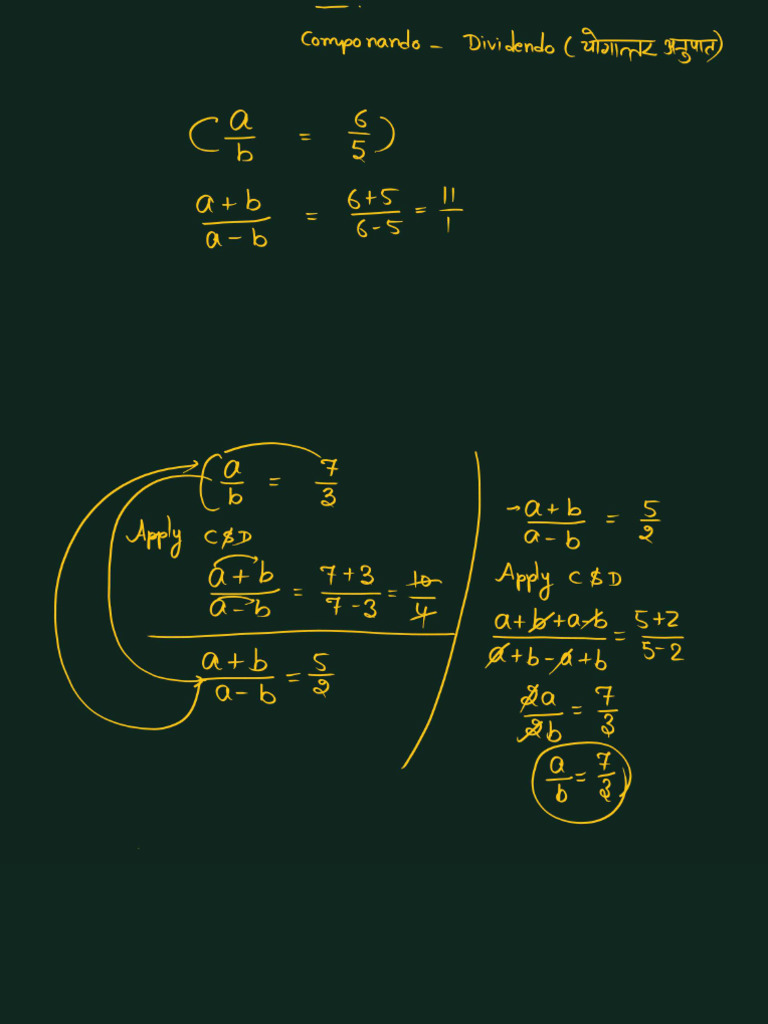 Componando - Dividendo (योगान्तर अनुपात)
(a/b = 6/5)
(a+b)/(a-b) = (6+5)/(6-5) = 11/1
(a/b = 7/3
Apply C&D
(a+b)/(a-b) = (7+3)/(7-3) = 10/4
(a+b)/(a-b) = 5/2
→(a+b)/(a-b) = 5/2
Apply C&D
(a+b+a-b)/(a+b-a+b) = (5+2)/(5-2)
2a/2b = 7/3
a/b = 7/3